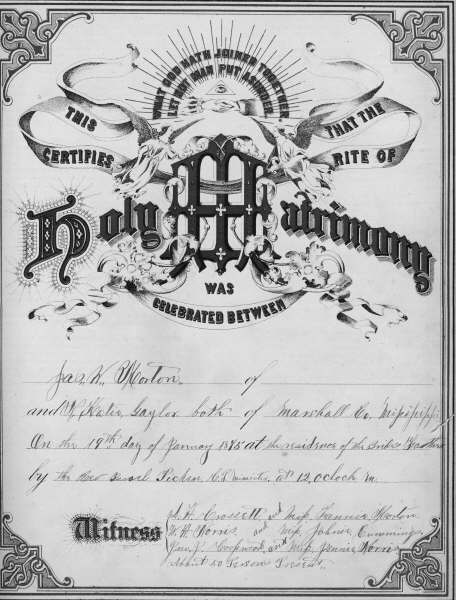 WHAT GOD HATH JOINED TOGETHER
LET NOT MAN PUT ASUNDER
THIS CERTIFIES
THAT THE RITE OF
Holy Matrimony
WAS
CELEBRATED BETWEEN
Jas W. Norton of
and Katie Gaylor both of Marshall Co. Mississippi
On the 19th day of January 1875 at the residence of the brides Father
by the Rev at 12 oclock m.
Witness
S. H. Crossett and Miss Fannie Norton
W. H. Norris and Miss Johnie Cummings
and Miss Jennie Norris
About 50 Persons Present.